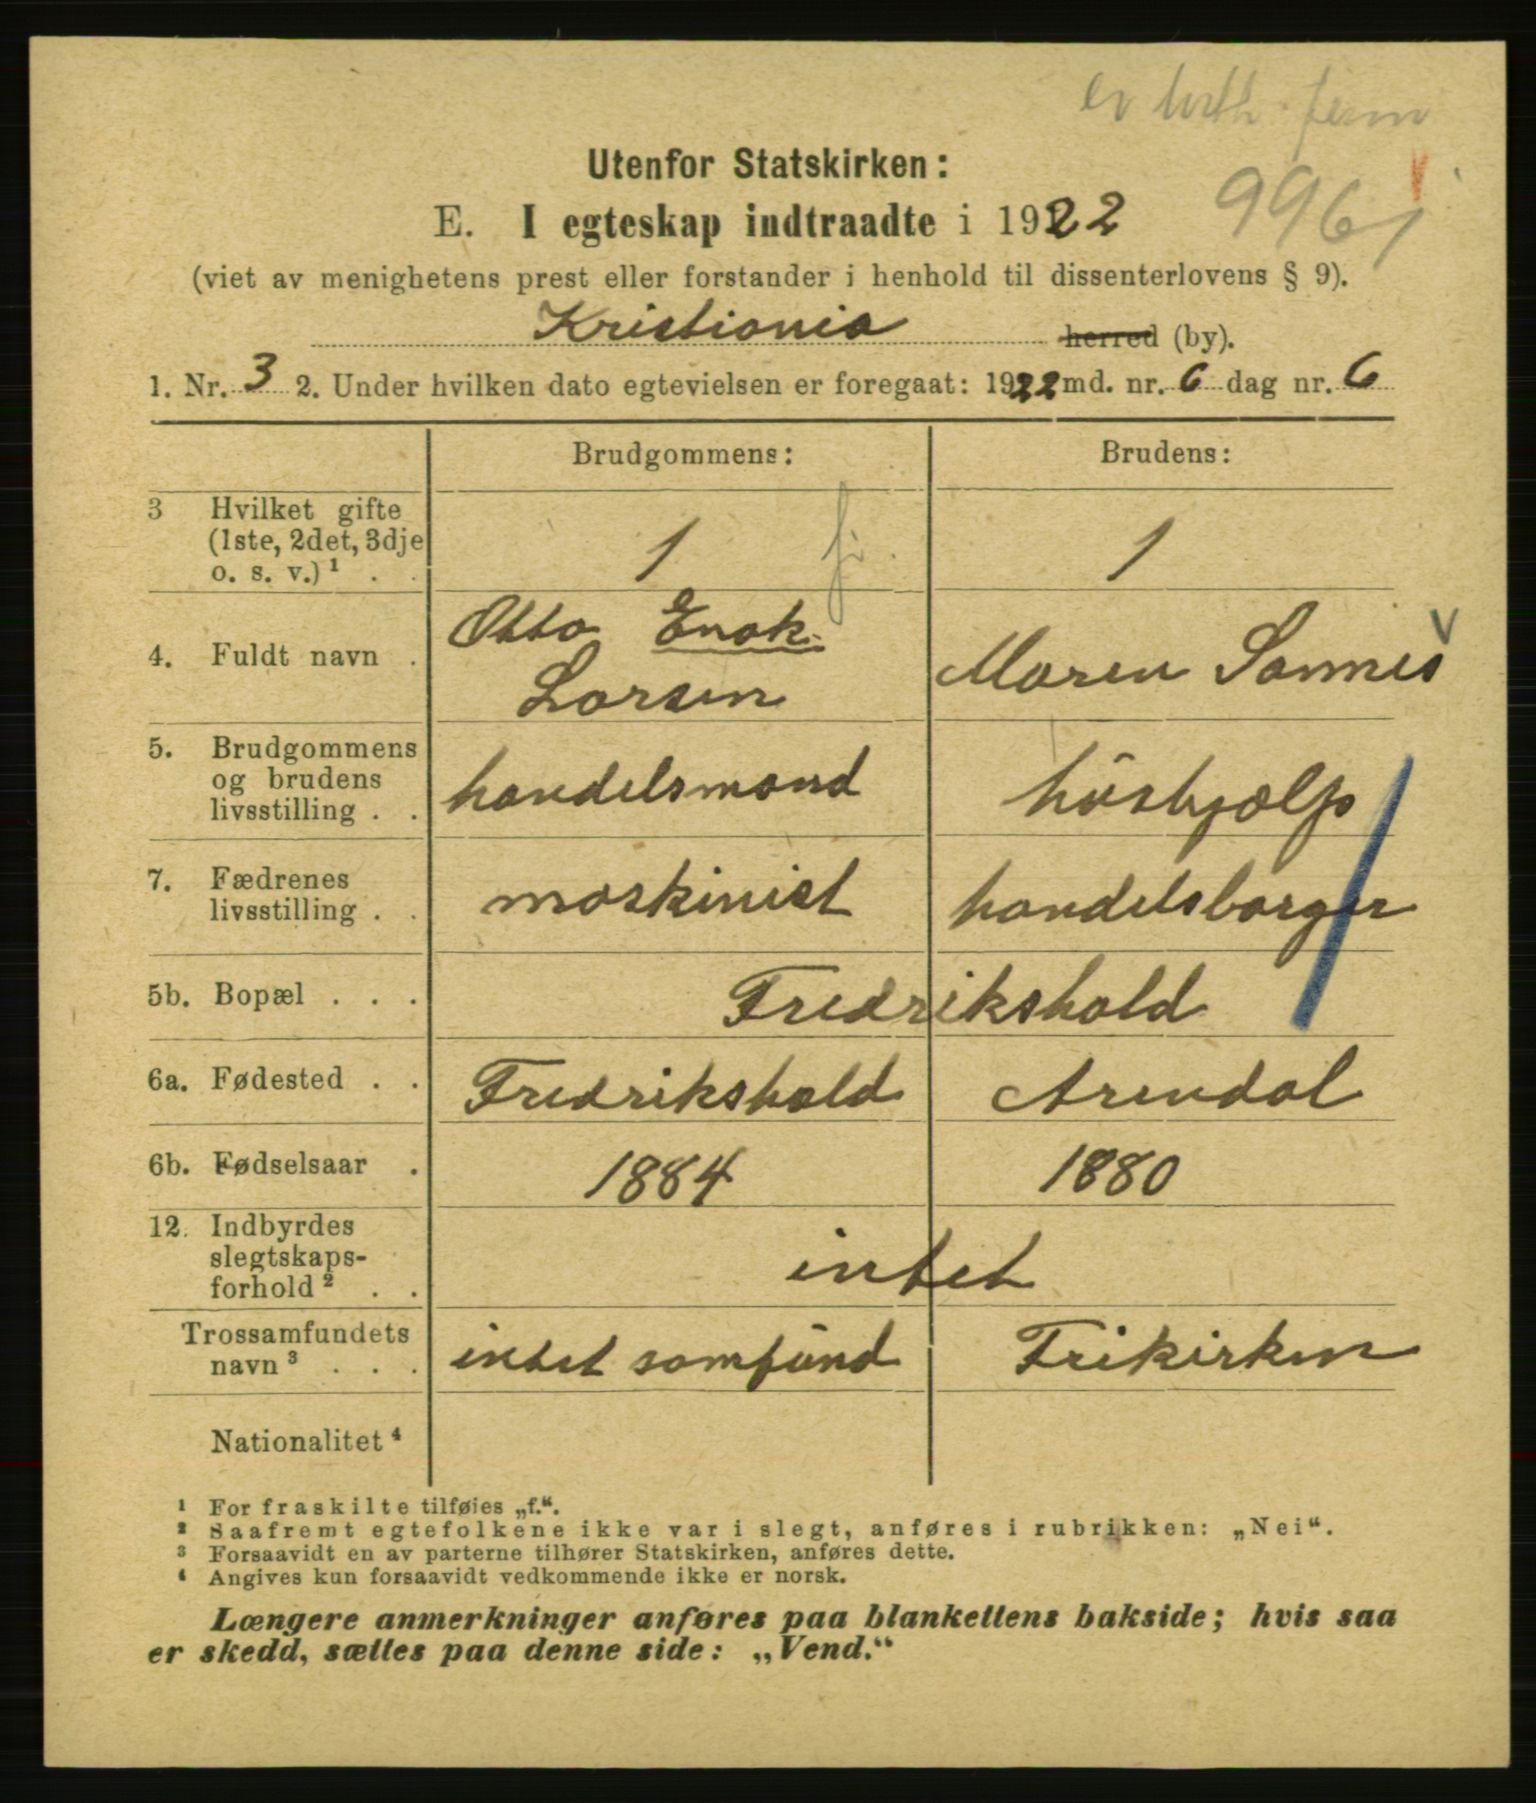 ev luth. frim
Utenfor Statskirken:
9961
E. I egteskap indtraadte i 1922
(viet av menighetens prest eller forstander i henhold til dissenterlovens § 9).
Kristiania herred (by).
1. Nr. 3 2. Under hvilken dato egtevielsen er foregaat: 1922 md. nr. 6 dag nr. 6
Brudgommens: Brudens:
3 Hvilket gifte
(1ste, 2det, 3dje
o. s. v.) ¹ . . 1 1
4. Fuldt navn . Otto Enok Larsen Maren Sannes
5. Brudgommens
og brudens
livsstilling . . handelsmand hushjælp
7. Fædrenes
livsstilling . . maskinist handelsborger
5b. Bopæl . . . Fredrikshald
6a. Fødested . . Fredrikshald Arendal
6b. Fødselsaar . 1884 1880
12. Indbyrdes
slegtskaps-
forhold ² . . intet
Trossamfundets
navn ³ . . . intet samfund Frikirken
Nationalitet ⁴
¹ For fraskilte tilføies „f.“.
² Saafremt egtefolkene ikke var i slegt, anføres i rubrikken: „Nei“.
³ Forsaavidt en av parterne tilhører Statskirken, anføres dette.
⁴ Angives kun forsaavidt vedkommende ikke er norsk.
Længere anmerkninger anføres paa blankettens bakside; hvis saa
er skedd, sættes paa denne side: „Vend.“